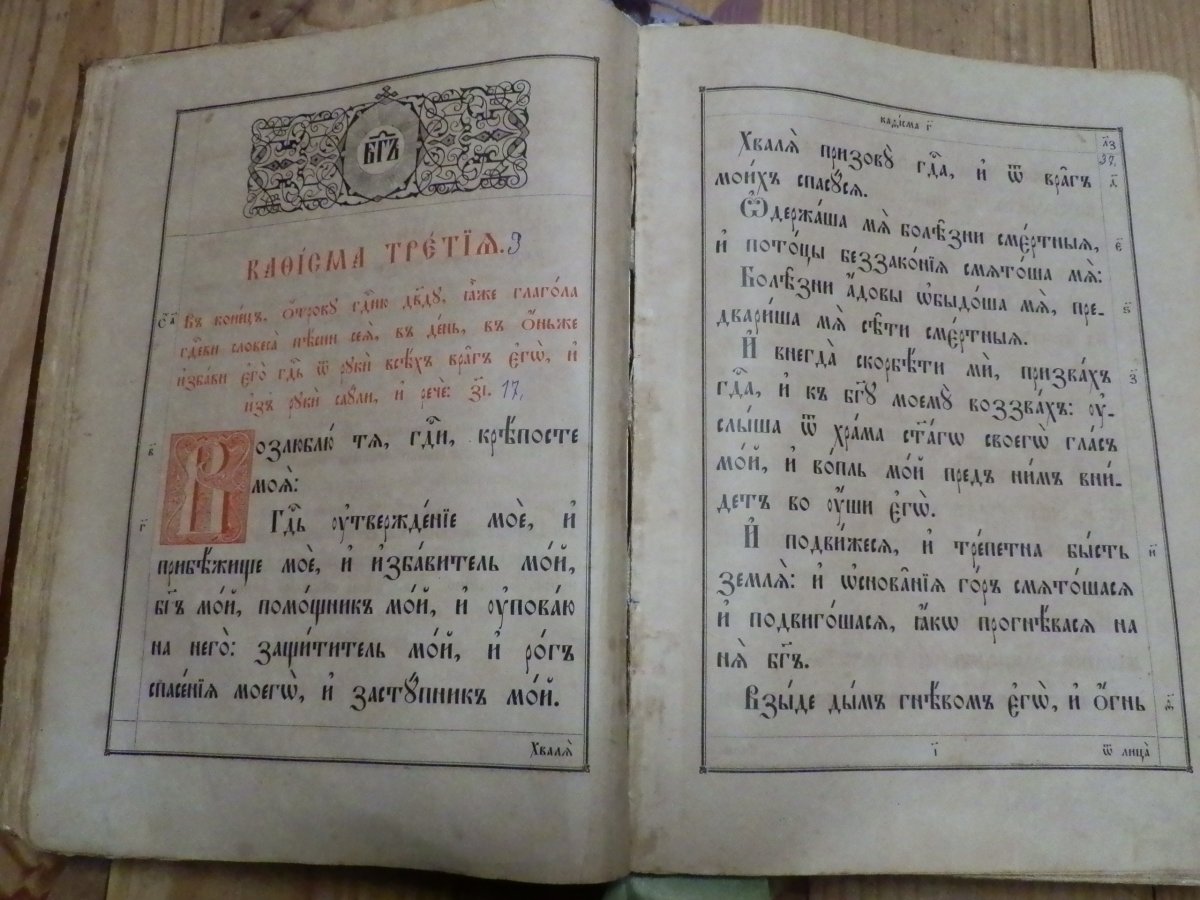 БГ҃Ъ
КАѲІ́СМА ТРЕ́ТІѦ. 3
Въ коне́цъ, ѻ҆́трокꙋ гдⷭ҇ню дв҃дꙋ, ꙗ҆̀же глаго́ла
гдⷭ҇еви словеса̀ пѣ́сни сеѧ̀, въ де́нь, въ ѻ҆́ньже
и҆зба́ви є҆го̀ гдⷭ҇ь ѿ рꙋкѝ всѣ́хъ вра̑гъ є҆гѡ̀, и҆
и҆зъ̀ рꙋкѝ саꙋ́ли, и҆ речѐ: з҃і. 17.
в҃
Возлюблю́ тѧ, гдⷭ҇и, крѣ́посте
моѧ̀:
г҃
Гдⷭ҇ь ᲂу҆твержде́нїе моѐ, и҆
прибѣ́жище моѐ, и҆ и҆зба́витель мо́й,
бг҃ъ мо́й, помо́щникъ мо́й, и҆ ᲂу҆пова́ю
на него̀: защи́титель мо́й, и҆ ро́гъ
спасе́нїѧ моегѡ̀, и҆ застꙋ́пникъ мо́й.
Хвалѧ̀
каѳі́сма г҃
л҃з
37.
Хвалѧ̀ призовꙋ̀ гдⷭ҇а, и҆ ѿ вра̑гъ
д҃
мои́хъ спасꙋ́сѧ.
Ѡ҆держа́ша мѧ̀ бѡлѣ́зни сме́ртныѧ,
є҃
и҆ пото́цы беззако́нїѧ смѧто́ша мѧ̀:
Бѡлѣ́зни а҆́дѡвы ѡ҆быдо́ша мѧ̀, пре-
ѕ҃
двари́ша мѧ̀ сѣ̑ти сме́ртныѧ.
И҆ внегда̀ скорбѣ́ти мѝ, призва́хъ
з҃
гдⷭ҇а, и҆ къ бг҃ꙋ моемꙋ̀ воззва́хъ: ᲂу҆-
слы́ша ѿ хра́ма ст҃а́гѡ своегѡ̀ гла́съ
мо́й, и҆ во́пль мо́й предъ ни́мъ вни́-
детъ во ᲂу҆́шы є҆гѡ̀.
И҆ подви́жесѧ, и҆ тре́петна бы́сть
и҃
землѧ̀: и҆ ѡ҆снова̑нїѧ го́ръ смѧто́шасѧ
и҆ подвиго́шасѧ, ꙗ҆́кѡ прогнѣ́васѧ на
нѧ̀ бг҃ъ.
Взы́де ды́мъ гнѣ́вомъ є҆гѡ̀, и҆ ѻ҆́гнь
ѳ҃
і҃
ѿ лица̀